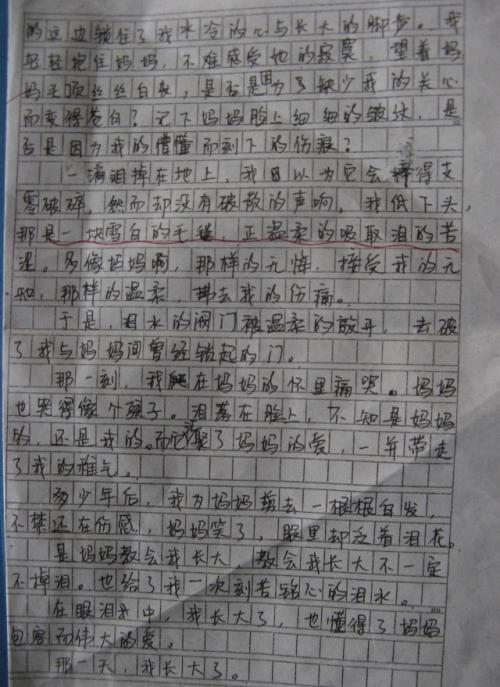 的这边锁住了我冰冷的心与长大的脚步。我
轻轻抱住妈妈，不难感受她的寂寞，望着妈
妈头顶丝丝白发，是否是因为了缺少我的关心
而变得苍白？记下妈妈脸上细细的皱纹，是
否是因为我的懵懂而刻下的伤痕？
一滴泪掉在地上，我因以为它会摔得支
零破碎，然而却没有破散的声响，我低下头，
那是一块雪白的毛毯，正温柔的吸取泪的苦
涩。多像妈妈啊，那样的无悔，接受我的无
知，那样的温柔，带去我的伤痛。
于是，泪水的阀门被温柔的放开，去破
了我与妈妈间曾经锁起的门。
那一刻，我爬在妈妈的怀里痛哭。妈妈
也哭得像个孩子。泪落在脸上，不知是妈妈
的，还是我的。而它聚了妈妈的爱，一并带走
了我的稚气。
多少年后，我为妈妈剪去一根根白发，
不禁还在伤感，妈妈笑了，眼里却泛着泪花。
是妈妈教会我长大，教会我长大不一定
不掉泪。也给了我一次刻苦铭心的泪水。
在眼泪中，我长大了，也懂得了妈妈
包容而伟大的爱。
那一天，我长大了。